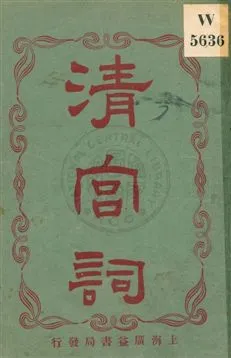 W
5636
清
宮
詞
CENTRAL LIBRARY
上海廣益書局發行